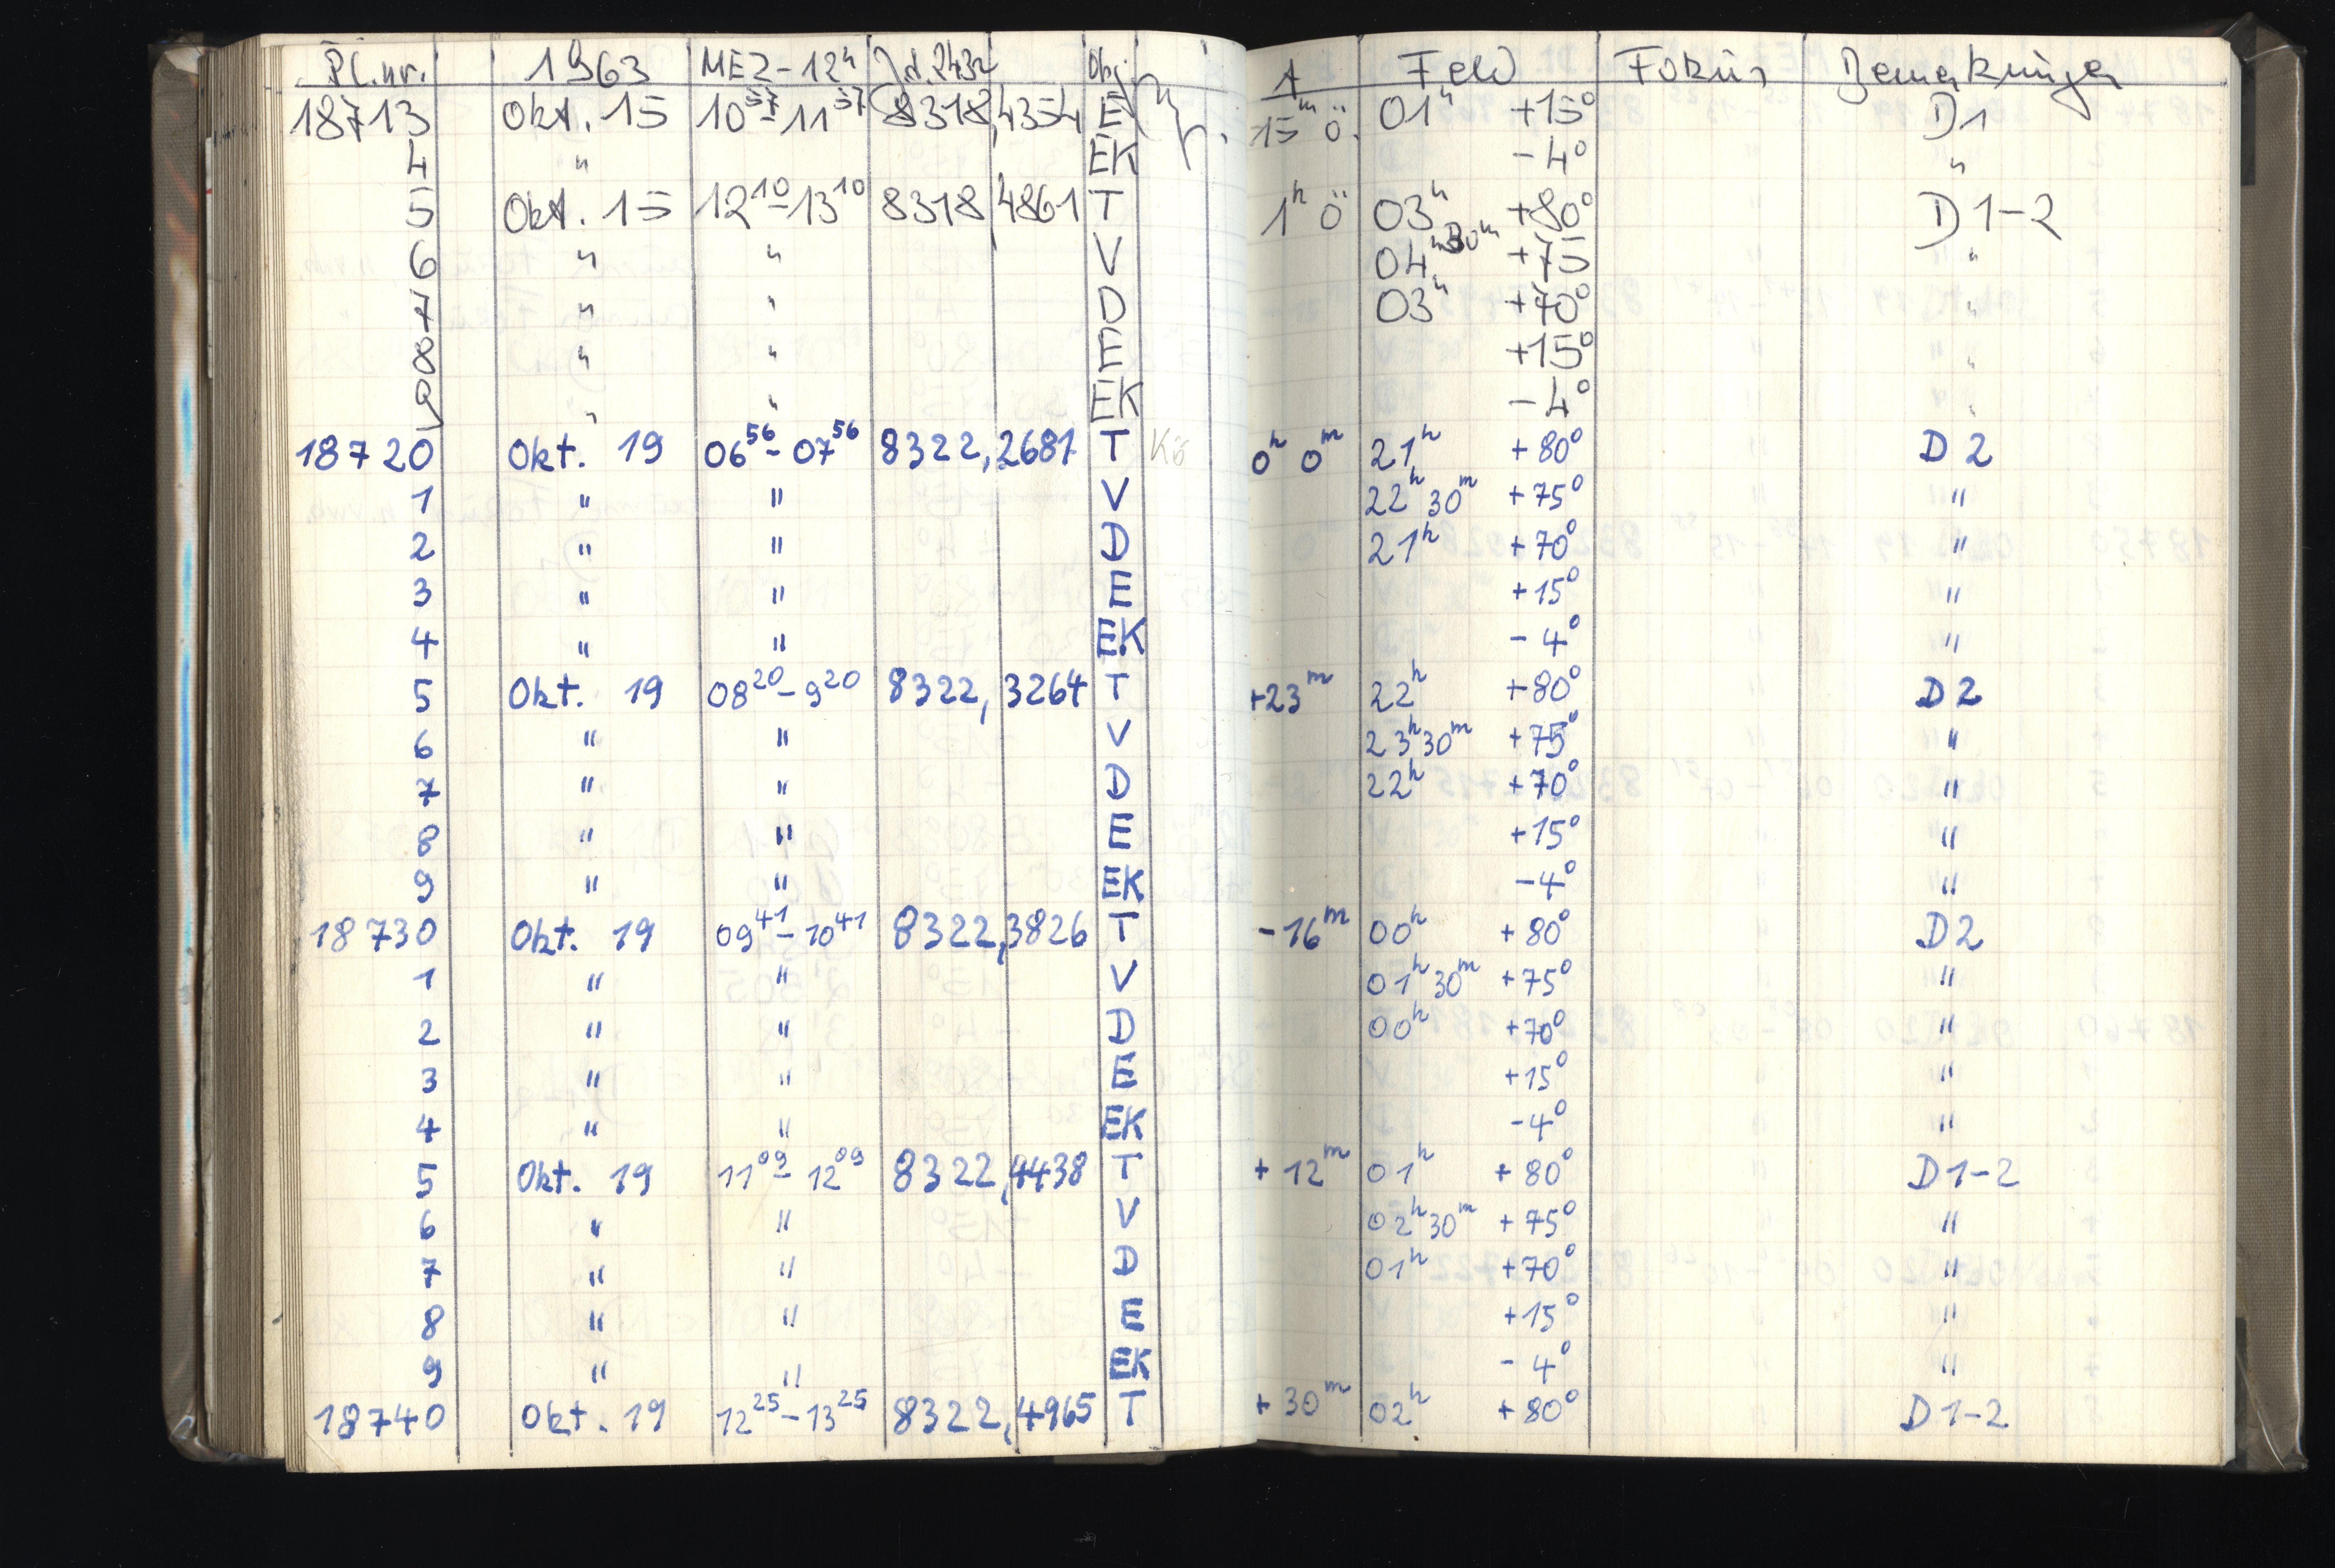 Pl.nr. 1963 MEZ-12h J.d. 243 Obj. A Feld Fokus Bemerkungen
18713 Okt. 15 10 57 - 11 57 8318,4354 E 15m ö. 01h +15° D1
4 " EK -4° "
5 Okt. 15 12 10 - 13 10 8318,4861 T 1h ö 03h +80° D1-2
6 " " V 04h 30m +75 "
7 " " D 03h +70° "
8 " " E +15° "
9 " " EK -4° "
18720 Okt. 19 06 56 - 07 56 8322,2681 T Kö 0h 0m 21h +80° D2
1 " " V 22h 30m +75° "
2 " " D 21h +70° "
3 " " E +15° "
4 " " EK -4° "
5 Okt. 19 08 20 - 9 20 8322,3264 T +23m 22h +80° D2
6 " " V 23h 30m +75° "
7 " " D 22h +70° "
8 " " E +15° "
9 " " EK -4° "
18730 Okt. 19 09 41 - 10 41 8322,3826 T -16m 00h +80° D2
1 " " V 01h 30m +75° "
2 " " D 00h +70° "
3 " " E +15° "
4 " " EK -4° "
5 Okt. 19 11 09 - 12 09 8322,4438 T +12m 01h +80° D1-2
6 " " V 02h 30m +75° "
7 " " D 01h +70° "
8 " " E +15° "
9 " " EK -4° "
18740 Okt. 19 12 25 - 13 25 8322,4965 T +30m 02h +80° D1-2